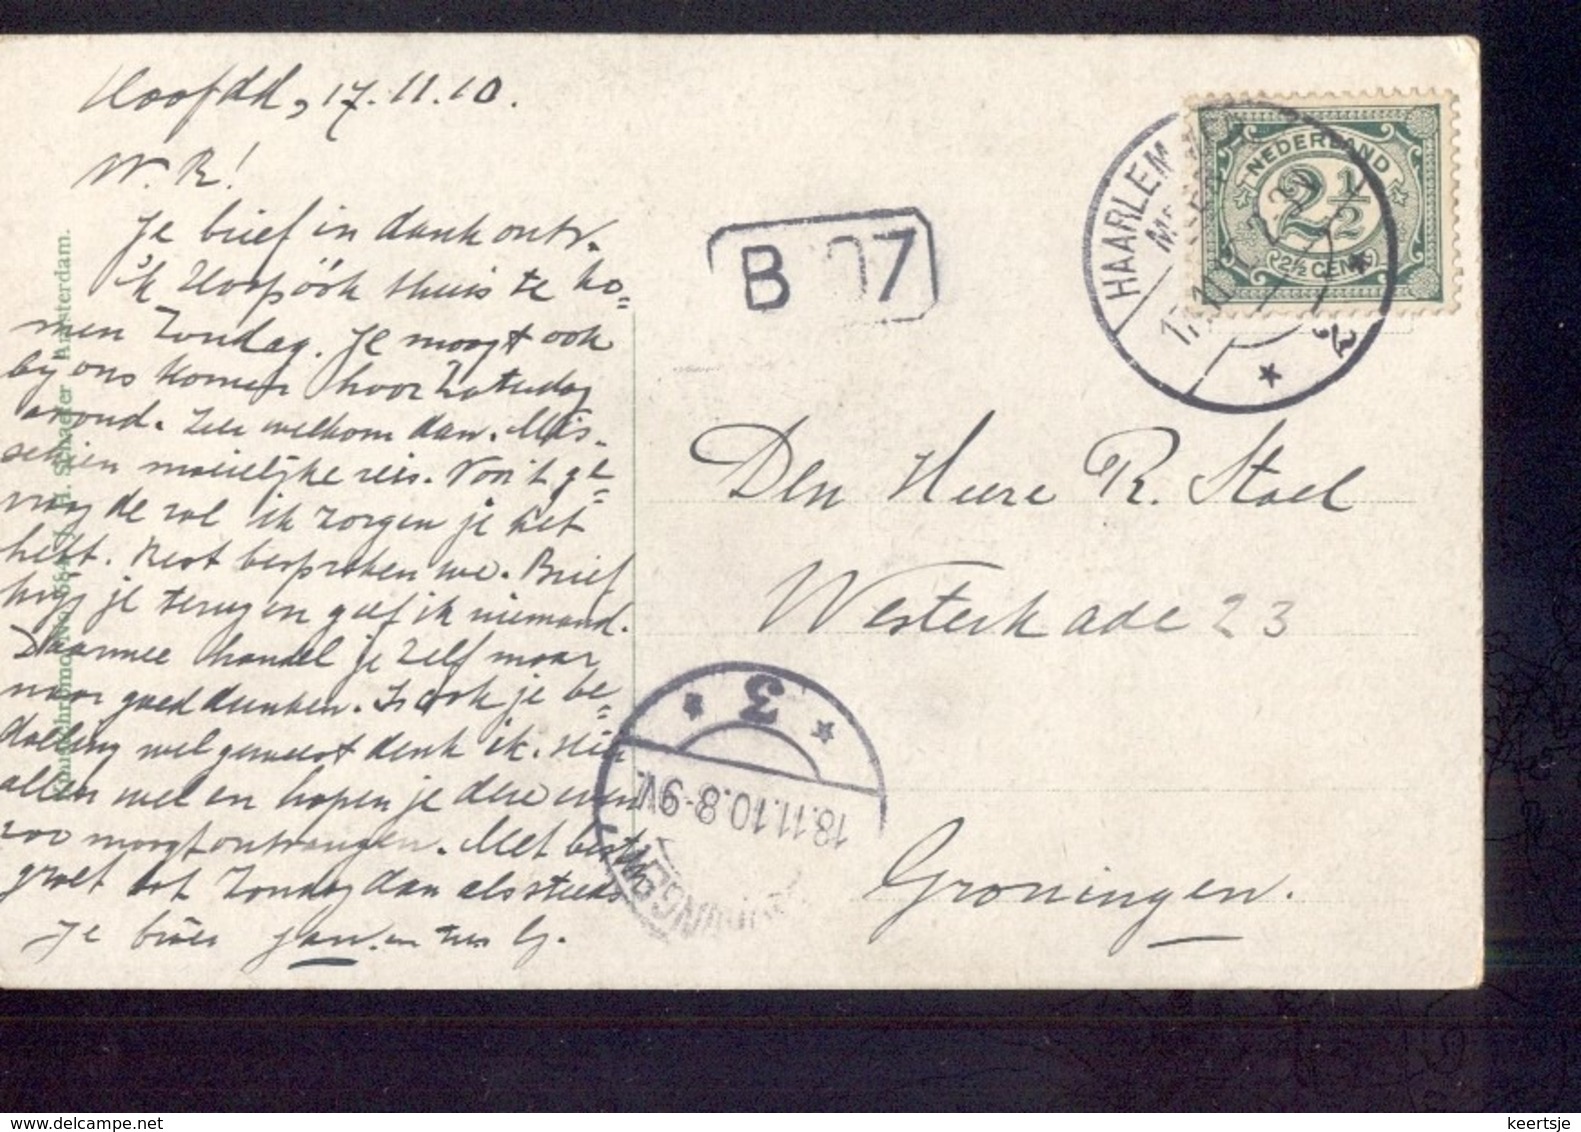 Hoofdd, 17.11.10.
W. R!
Je brief in dank ontv.
ik Hoop óók thuis te ko=
men Zondag. Je moogt ook
bij ons komen hoor Zaterdag
avond. Zeer welkom dan. Mis-
schien moeielijke reis. Voor 't ge=
vraagde zal ik zorgen je het
hebt. Rest bespreken we. Brief
krijg je terug en geef ik niemand.
Daarmee handel je zelf maar
naar goeddunken. Is ook je be=
doeling wel geweest denk ik. Hier
allen wel en hopen je deze even
zoo moogt ontvangen. Met besten
groet tot Zondag dan als steeds
Je broer Jan.
Schaefer Amsterdam.
B 07
HAARLEM
NEDERLAND
2½
2½ CENT
17.11
2
Den Heere R. Stael
Westerkade 23
Groningen.
3
18.11.10.8-9V.
GRONINGEN
keertsje